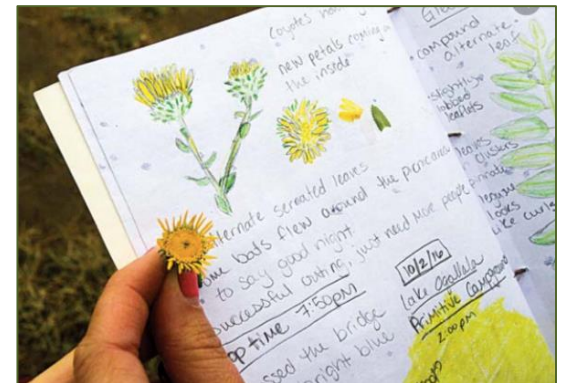 Coyotes
new petals coming in
the inside
alternate sereated leaves
bats flew around the picnic area
to say good night.
successful outing, just need more people
time 7:50pm
the bridge
bright blue
10/2/16
Lake Ogallala
Primitive Campground
2:00pm
compound
alternate
leaf
slightly
lobed
leaflets
leaves
clusters
pinnate
looks
like curls